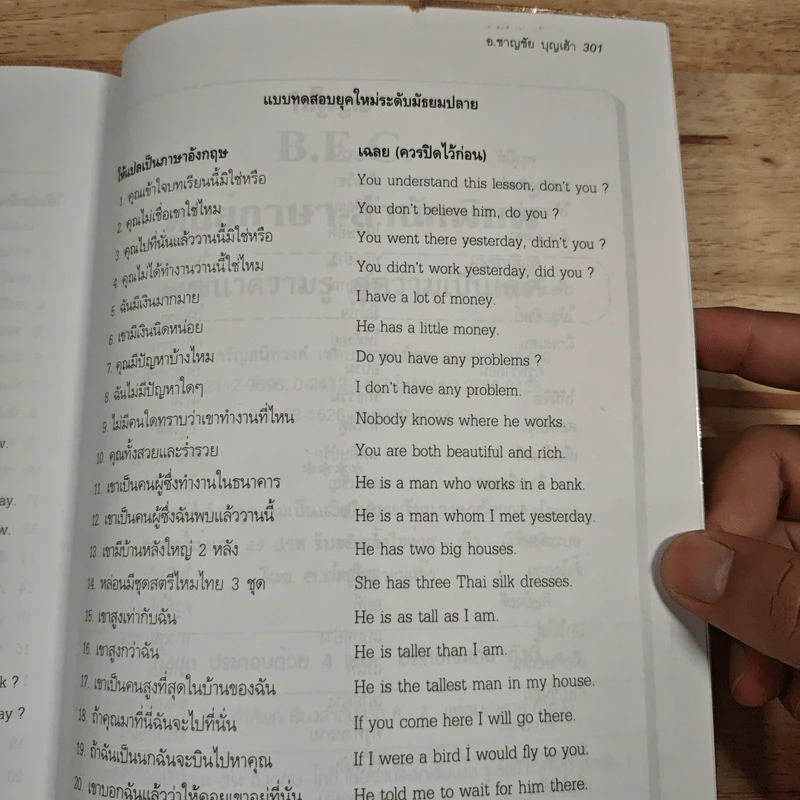 อ.ชาญชัย บุญเฮ้า 301
แบบทดสอบยุคใหม่ระดับมัธยมปลาย
ให้แปลเป็นภาษาอังกฤษ เฉลย (ควรปิดไว้ก่อน)
1. คุณเข้าใจบทเรียนนี้มิใช่หรือ You understand this lesson, don't you ?
2. คุณไม่เชื่อเขาใช่ไหม You don't believe him, do you ?
3. คุณไปที่นั่นแล้ววานนี้มิใช่หรือ You went there yesterday, didn't you ?
4. คุณไม่ได้ทำงานวานนี้ใช่ไหม You didn't work yesterday, did you ?
5. ฉันมีเงินมากมาย I have a lot of money.
6. เขามีเงินนิดหน่อย He has a little money.
7. คุณมีปัญหาบ้างไหม Do you have any problems ?
8. ฉันไม่มีปัญหาใดๆ I don't have any problem.
9. ไม่มีคนใดทราบว่าเขาทำงานที่ไหน Nobody knows where he works.
10. คุณทั้งสวยและร่ำรวย You are both beautiful and rich.
11. เขาเป็นคนผู้ซึ่งทำงานในธนาคาร He is a man who works in a bank.
12. เขาเป็นคนผู้ซึ่งฉันพบแล้ววานนี้ He is a man whom I met yesterday.
13. เขามีบ้านหลังใหญ่ 2 หลัง He has two big houses.
14. หล่อนมีชุดสตรีไหมไทย 3 ชุด She has three Thai silk dresses.
15. เขาสูงเท่ากับฉัน He is as tall as I am.
16. เขาสูงกว่าฉัน He is taller than I am.
17. เขาเป็นคนสูงที่สุดในบ้านของฉัน He is the tallest man in my house.
18. ถ้าคุณมาที่นี่ฉันจะไปที่นั่น If you come here I will go there.
19. ถ้าฉันเป็นนกฉันจะบินไปหาคุณ If I were a bird I would fly to you.
20. เขาบอกฉันแล้วว่าให้คอยเขาอยู่ที่นั่น He told me to wait for him there.